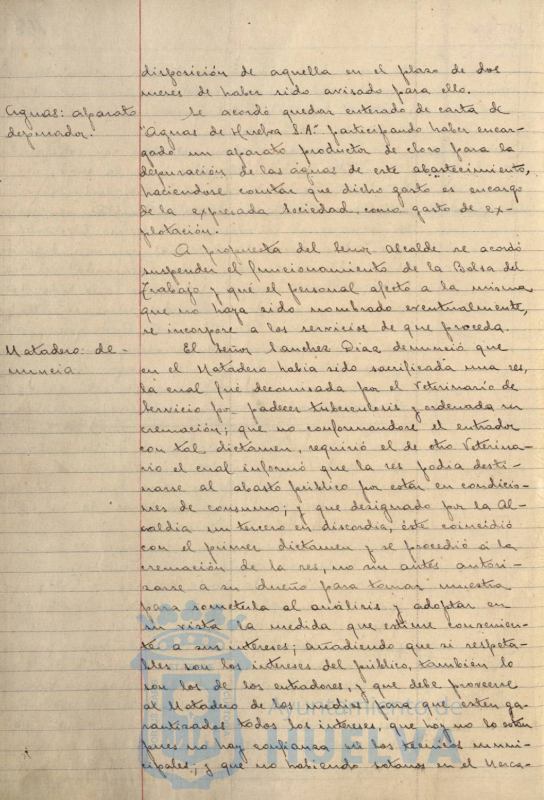 disposición de aquella en el plazo de dos
meses de haber sido avisado para ello.
Aguas: aparato
depurador.
Se acordó quedar enterado de carta de
"Aguas de Huelva S.A." participando haber encar-
gado un aparato productor de cloro para la
depuración de las aguas de este abastecimiento,
haciendose constar que dicho gasto es encargo
de la expresada Sociedad como gasto de ex-
plotación.
A propuesta del Señor Alcalde se acordó
suspender el funcionamiento de la Bolsa del
Trabajo y que el personal afecto a la misma
que no haya sido nombrado eventualmente,
se incorpore a los servicios de que proceda.
Matadero: de-
nuncia
El Señor Sanchez Diaz denunció que
en el Matadero habia sido sacrificada una res,
la cual fué decomisada por el Veterinario de
Servicio por padecer tuberculosis y ordenada su
cremación; que no conformandose el entrador
con tal dictamen, requirió el de otro Veterina-
rio el cual informó que la res podia desti-
narse al abasto público por estar en condicio-
nes de consumo; y que designado por la Al-
caldia un tercero en discordia, éste coincidió
con el primer dictamen y se procedió a la
cremación de la res, no sin antes autori-
zarse a su dueño para tomar muestra
para someterla al análisis y adoptar en
su vista la medida que estime convenien-
te a sus intereses; añadiendo que si respeta-
bles son los intereses del público, tambien lo
son los de los entradores, y que debe proveerse
al Matadero de los medios para que esten ga-
rantizados todos los intereses, que hoy no lo estan
pues no hay confianza en los técnicos muni-
cipales; y que no habiendo sotanos en el Merca-
Ayuntamiento de
HUELVA